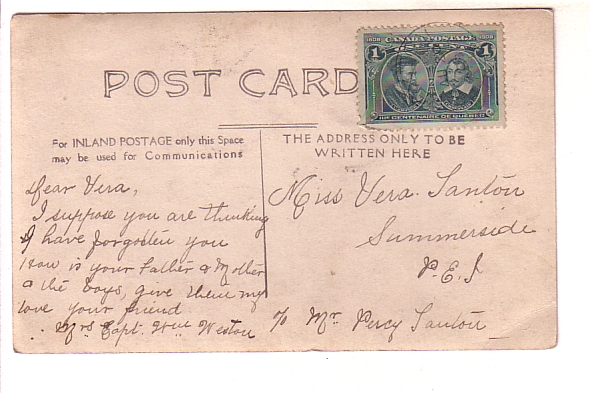 POST CARD
1608 CANADA POSTAGE 1908
1 CENT 1
IIIe CENTENAIRE DE QUEBEC
For INLAND POSTAGE only this Space
may be used for Communications
THE ADDRESS ONLY TO BE
WRITTEN HERE
Dear Vera,
I suppose you are thinking
I have forgotten you
How is your Father & Mother
& the boys, give them my
love your friend
Mrs Capt. Wm Weston
Miss Vera Tanton
Summerside
P.E.I
c/o Mr. Percy Tanton